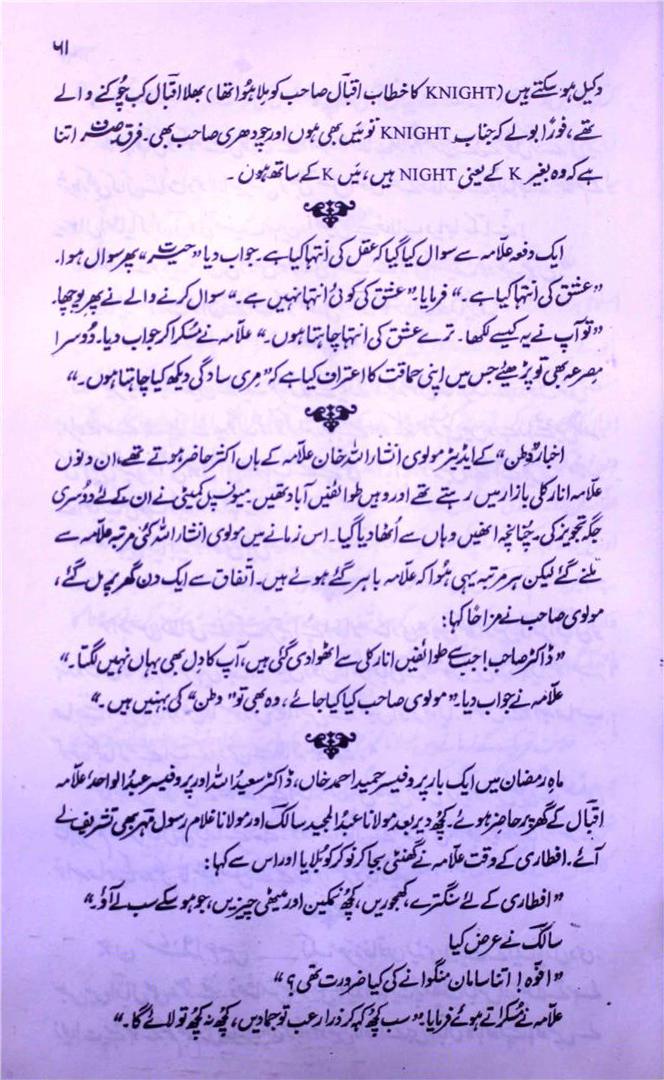 ۶۱
وکیل ہو سکتے ہیں (KNIGHT کا خطاب اقبال صاحب کو ملا ہوا تھا) بھلا اقبال کب چُوکنے والے
تھے، فوراً بولے کہ جناب KNIGHT تو مَیں بھی ہُوں اور چودھری صاحب بھی۔ فرق صرف اتنا
ہے کہ وہ بغیر K کے یعنی NIGHT ہیں، مَیں K کے ساتھ ہُوں۔
ایک دفعہ علامہ سے سوال کیا گیا کہ عقل کی انتہا کیا ہے۔ جواب دیا "حیرت" پھر سوال ہوا۔
"عشق کی انتہا کیا ہے۔" فرمایا۔ "عشق کی کوئی انتہا نہیں ہے۔" سوال کرنے والے نے پھر پوچھا۔
"تو آپ نے یہ کیسے لکھا۔ ترے عشق کی انتہا چاہتا ہوں۔" علامہ نے مُسکرا کر جواب دیا۔ دُوسرا
مصرعہ بھی تو پڑھیئے جس میں اپنی حماقت کا اعتراف کیا ہے کہ "مری سادگی دیکھ کیا چاہتا ہوں۔"
اخبار "وطن" کے ایڈیٹر مولوی انشاء اللہ خان علامہ کے ہاں اکثر حاضر ہوتے تھے، ان دنوں
علامہ انار کلی بازار میں رہتے تھے اور وہیں طوائفیں آباد تھیں۔ میونسپل کمیٹی نے ان کے لئے دُوسری
جگہ تجویز کی۔ چُنانچہ انھیں وہاں سے اُٹھا دیا گیا۔ اس زمانے میں مولوی انشاء اللہ کئی مرتبہ علامہ سے
ملنے گئے لیکن ہر مرتبہ یہی ہُوا کہ علامہ باہر گئے ہوئے ہیں۔ اتفاق سے ایک دن گھر پر مل گئے،
مولوی صاحب نے مزاحاً کہا:
"ڈاکٹر صاحب! جب سے طوائفیں انارکلی سے اٹھوا دی گئی ہیں، آپ کا دِل بھی یہاں نہیں لگتا۔"
علامہ نے جواب دیا۔ "مولوی صاحب کیا کیا جائے، وہ بھی تو "وطن" کی بہنیں ہیں۔"
ماہِ رمضان میں ایک بار پروفیسر حمید احمد خاں، ڈاکٹر سعید اللہ اور پروفیسر عبدُ الواحد علامہ
اقبال کے گھر پر حاضر ہوئے۔ کچھ دیر بعد مولانا عبدُ المجید سالک اور مولانا غلام رسول مہر بھی تشریف لے
آئے۔ افطاری کے وقت علامہ نے گھنٹی بجا کر نوکر کو بُلایا اور اس سے کہا:
"افطاری کے لئے سنگترے، کھجوریں، کچُھ نمکین اور میٹھی چیزیں، جو ہو سکے سب لے آؤ۔"
سالک نے عرض کیا
"افوّہ! اتنا سامان منگوانے کی کیا ضرورت تھی؟"
علامہ نے مُسکراتے ہوئے فرمایا: "سب کچُھ کہہ کر ذرا رعب تو جما دیں، کچُھ نہ کچُھ تو لائے گا۔"